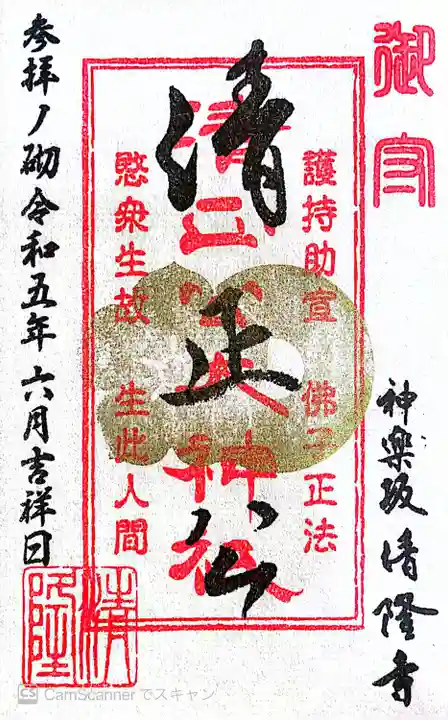 御守
護持助宣 佛之正法
清正公大神祇
愍衆生故 生此人間
清正公
神楽坂清隆寺
参拝ノ砌令和五年六月吉祥日
清隆
CS CamScanner でスキャン